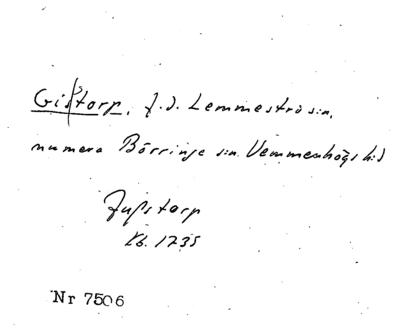 Gistorp, f.d. Lemmeströ sn,
numera Börringe sn. Vemmenhögs hd
Kb. 1735
Nr 7506